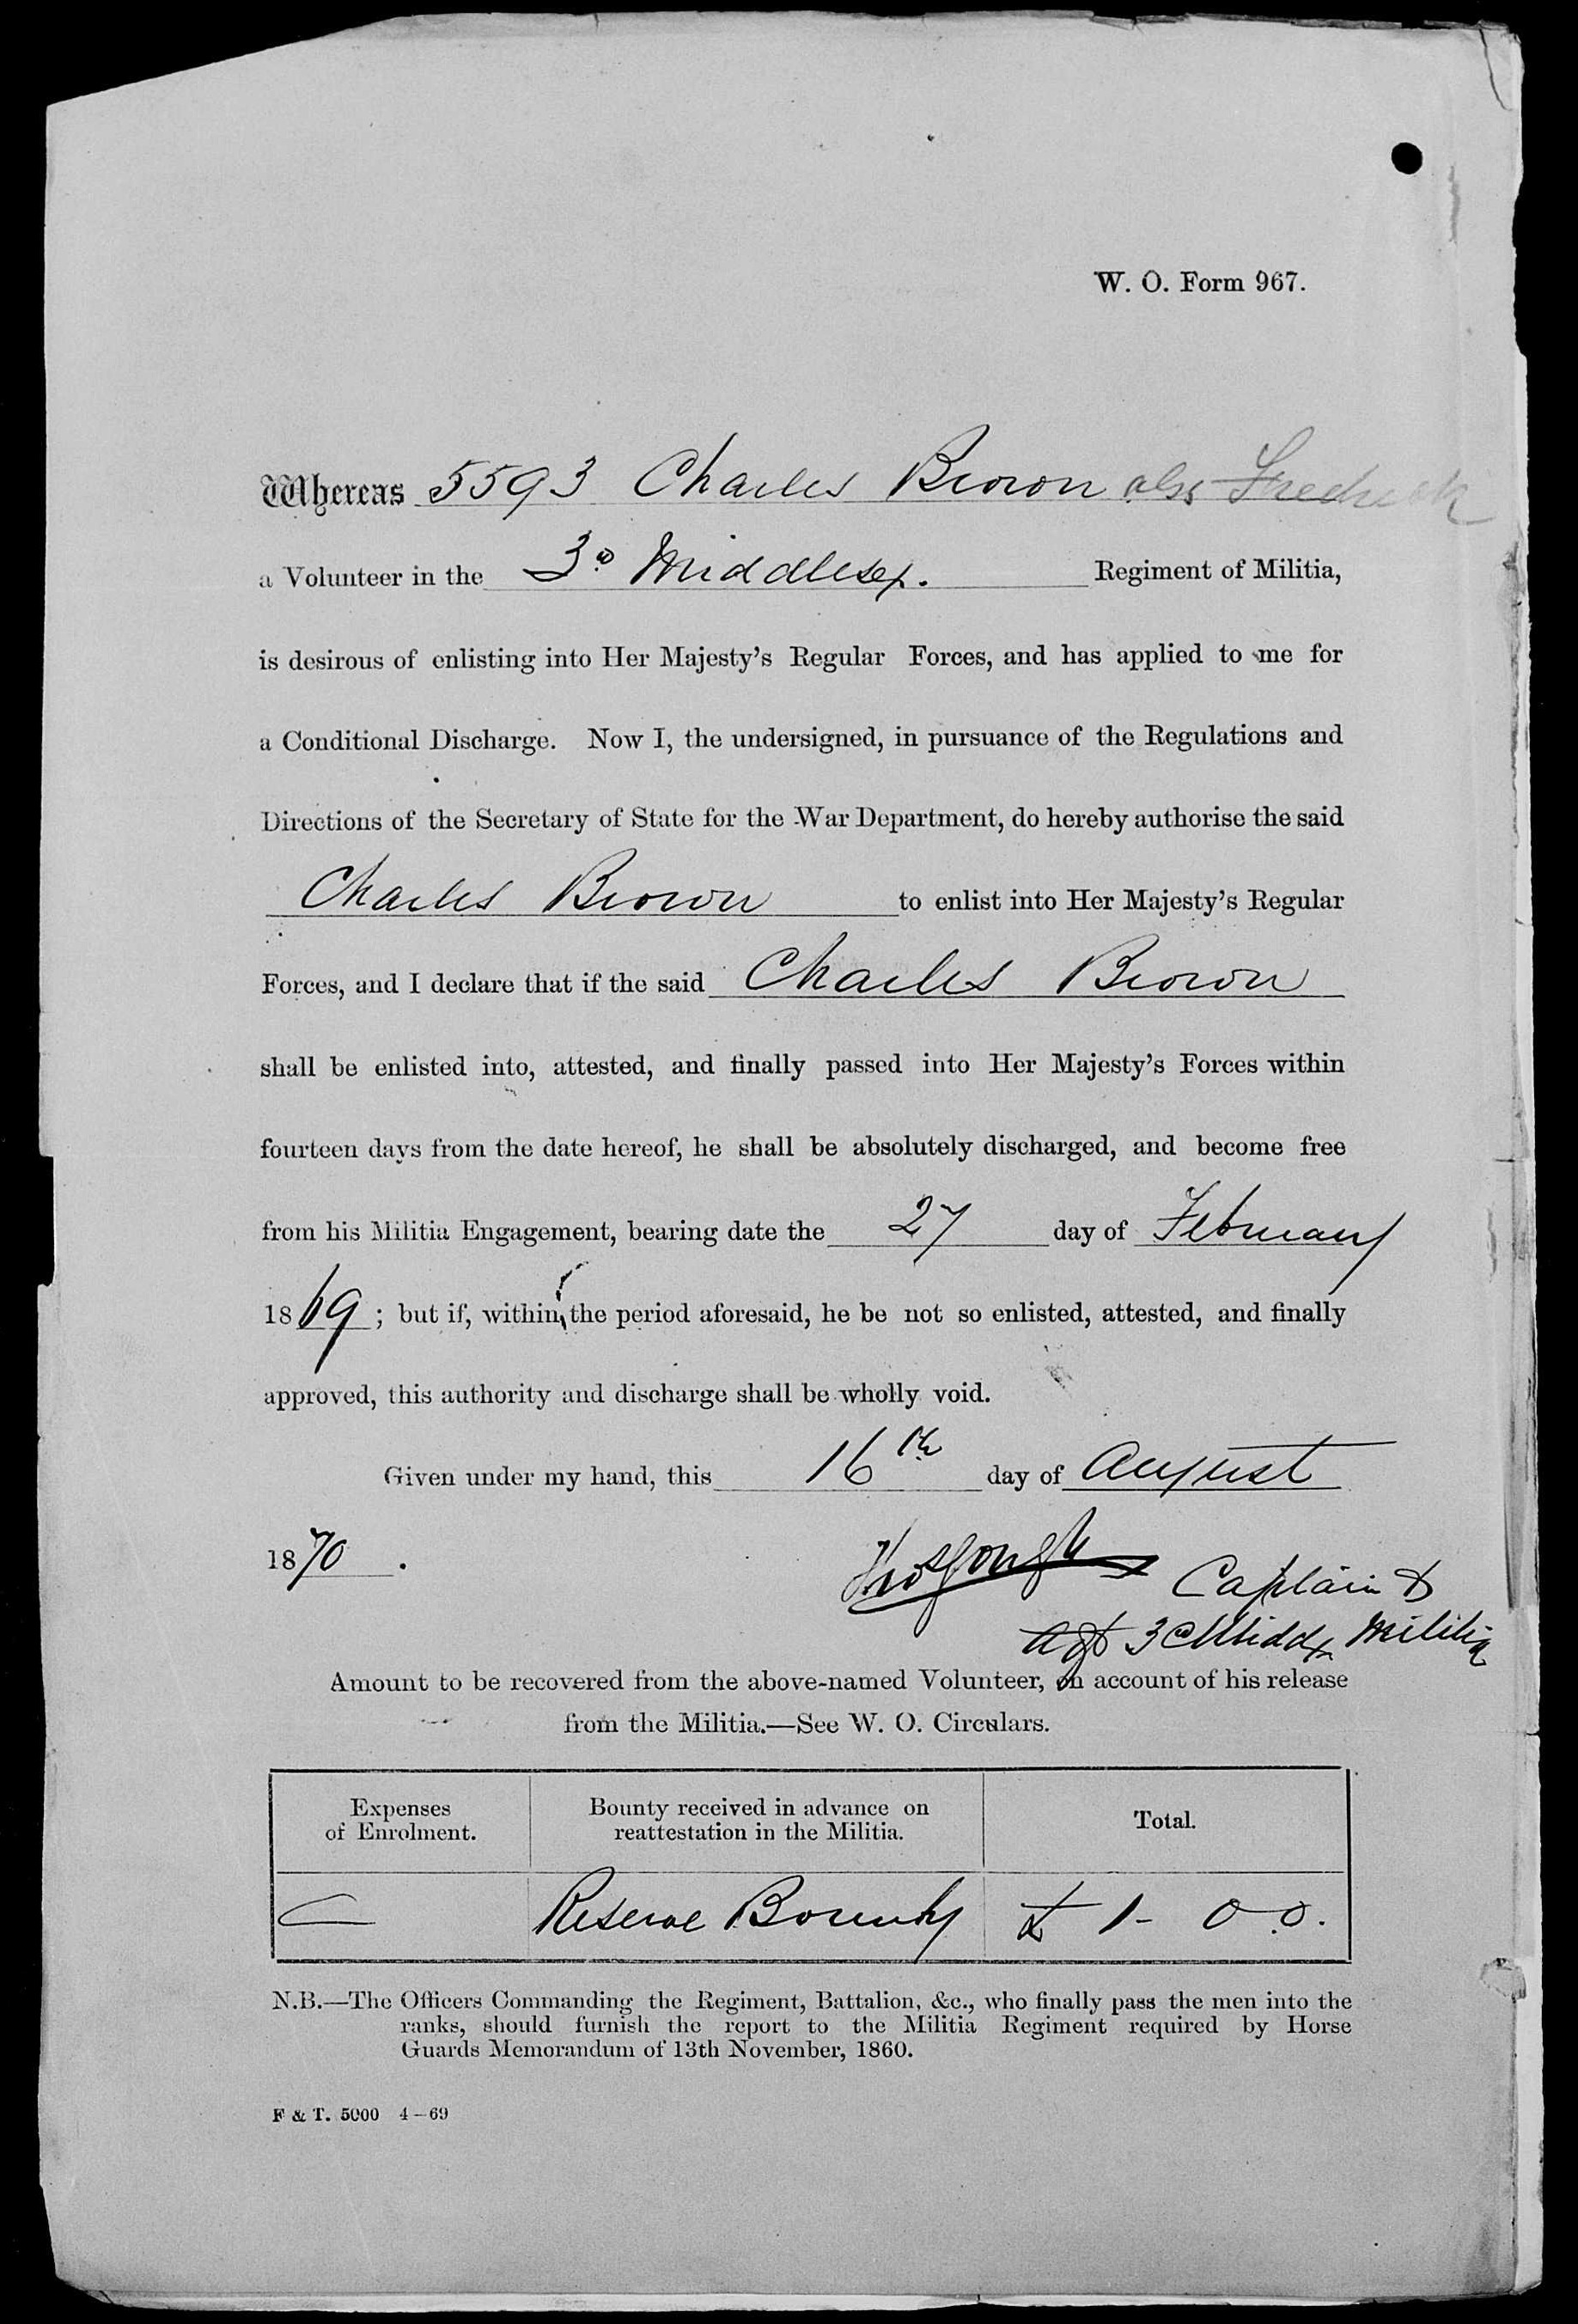 W. O. Form 967.
Whereas 5593 Charles Brown als Frederick
a Volunteer in the 3rd Middlesex. Regiment of Militia,
is desirous of enlisting into Her Majesty's Regular Forces, and has applied to me for
a Conditional Discharge. Now I, the undersigned, in pursuance of the Regulations and
Directions of the Secretary of State for the War Department, do hereby authorise the said
Charles Brown to enlist into Her Majesty's Regular
Forces, and I declare that if the said Charles Brown
shall be enlisted into, attested, and finally passed into Her Majesty's Forces within
fourteen days from the date hereof, he shall be absolutely discharged, and become free
from his Militia Engagement, bearing date the 27 day of February
1869; but if, within the period aforesaid, he be not so enlisted, attested, and finally
approved, this authority and discharge shall be wholly void.
Given under my hand, this 16th day of August
1870.
Thos Gough Captain &
Agt 3rd Middx Militia
Amount to be recovered from the above-named Volunteer, on account of his release
from the Militia.—See W. O. Circulars.
Expenses
of Enrolment.
Bounty received in advance on
reattestation in the Militia.
Total.
Reserve Bounty £ 1 - 0 . 0 .
N.B.—The Officers Commanding the Regiment, Battalion, &c., who finally pass the men into the
ranks, should furnish the report to the Militia Regiment required by Horse
Guards Memorandum of 13th November, 1860.
F & T. 5000 4—69